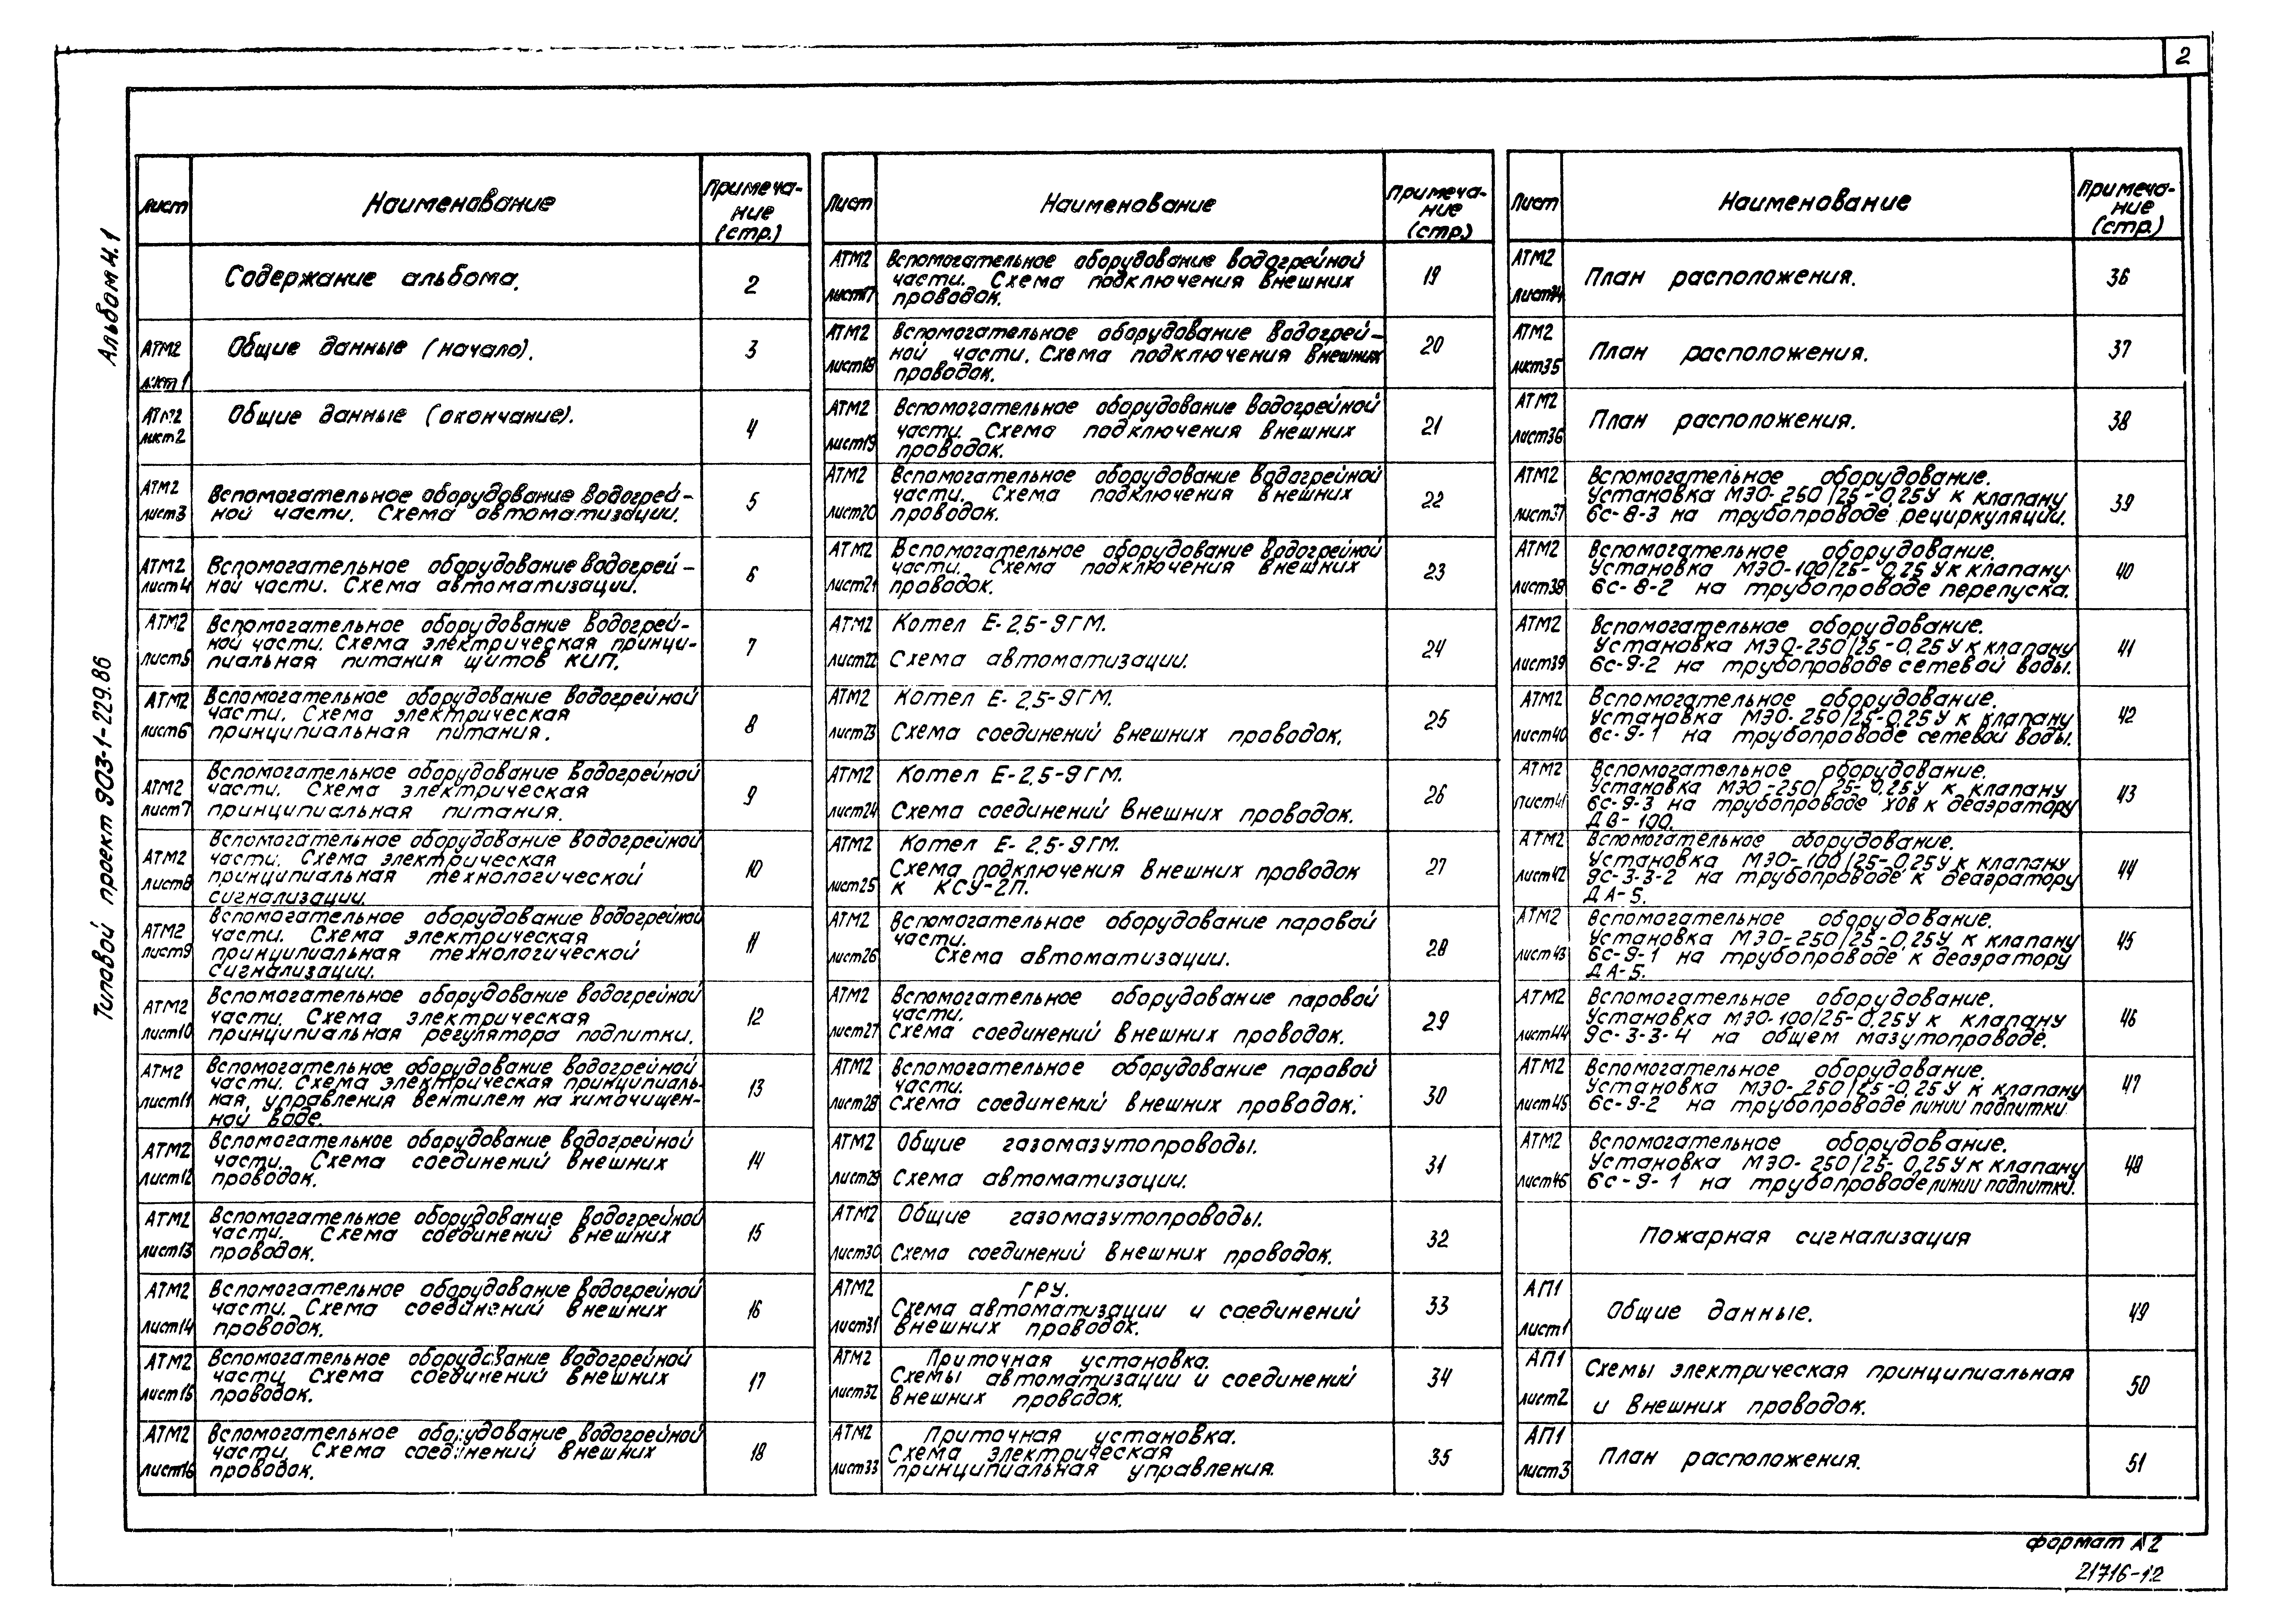 2
Альбом 4.1
Типовой проект 903-1-229.86
Лист
Наименование
Примеча-
ние
(стр.)
Содержание альбома.
2
АТМ2
лист1
Общие данные (начало).
3
АТМ2
лист2
Общие данные (окончание).
4
АТМ2
лист3
Вспомогательное оборудование водогрей-
ной части. Схема автоматизации.
5
АТМ2
лист4
Вспомогательное оборудование водогрей-
ной части. Схема автоматизации.
6
АТМ2
лист5
Вспомогательное оборудование водогрей-
ной части. Схема электрическая принци-
пиальная питания щитов КИП.
7
АТМ2
лист6
Вспомогательное оборудование водогрейной
части. Схема электрическая
принципиальная питания.
8
АТМ2
лист7
Вспомогательное оборудование водогрейной
части. Схема электрическая
принципиальная питания.
9
АТМ2
лист8
Вспомогательное оборудование водогрейной
части. Схема электрическая
принципиальная технологической
сигнализации.
10
АТМ2
лист9
Вспомогательное оборудование водогрейной
части. Схема электрическая
принципиальная технологической
сигнализации.
11
АТМ2
лист10
Вспомогательное оборудование водогрейной
части. Схема электрическая
принципиальная регулятора подпитки.
12
АТМ2
лист11
Вспомогательное оборудование водогрейной
части. Схема электрическая принципиаль-
ная, управления вентилем на химочищен-
ной воде.
13
АТМ2
лист12
Вспомогательное оборудование водогрейной
части. Схема соединений внешних
проводок.
14
АТМ2
лист13
Вспомогательное оборудование водогрейной
части. Схема соединений внешних
проводок.
15
АТМ2
лист14
Вспомогательное оборудование водогрейной
части. Схема соединений внешних
проводок.
16
АТМ2
лист15
Вспомогательное оборудование водогрейной
части Схема соединений внешних
проводок.
17
АТМ2
лист16
Вспомогательное оборудование водогрейной
части. Схема соединений внешних
проводок.
18
Лист
Наименование
Примеча-
ние
(стр.)
АТМ2
лист17
Вспомогательное оборудование водогрейной
части. Схема подключения внешних
проводок.
19
АТМ2
лист18
Вспомогательное оборудование водогрей-
ной части. Схема подключения внешних
проводок.
20
АТМ2
лист19
Вспомогательное оборудование водогрейной
части. Схема подключения внешних
проводок.
21
АТМ2
лист20
Вспомогательное оборудование водогрейной
части. Схема подключения внешних
проводок.
22
АТМ2
лист21
Вспомогательное оборудование водогрейной
части. Схема подключения внешних
проводок.
23
АТМ2
лист22
Котел Е-2,5-9ГМ.
Схема автоматизации.
24
АТМ2
лист23
Котел Е-2,5-9ГМ.
Схема соединений внешних проводок.
25
АТМ2
лист24
Котел Е-2,5-9ГМ.
Схема соединений внешних проводок.
26
АТМ2
лист25
Котел Е-2,5-9ГМ.
Схема подключения внешних проводок
к КСУ-2П.
27
АТМ2
лист26
Вспомогательное оборудование паровой
части.
Схема автоматизации.
28
АТМ2
лист27
Вспомогательное оборудование паровой
части.
Схема соединений внешних проводок.
29
АТМ2
лист28
Вспомогательное оборудование паровой
части.
Схема соединений внешних проводок.
30
АТМ2
лист29
Общие газомазутопроводы.
Схема автоматизации.
31
АТМ2
лист30
Общие газомазутопроводы.
Схема соединений внешних проводок.
32
АТМ2
лист31
ГРУ.
Схема автоматизации и соединений
внешних проводок.
33
АТМ2
лист32
Приточная установка.
Схемы автоматизации и соединений
внешних проводок.
34
АТМ2
лист33
Приточная установка.
Схема электрическая
принципиальная управления.
35
Лист
Наименование
Примеча-
ние
(стр.)
АТМ2
лист34
План расположения.
36
АТМ2
лист35
План расположения.
37
АТМ2
лист36
План расположения.
38
АТМ2
лист37
Вспомогательное оборудование.
Установка МЭО-250/25-0,25У к клапану
6с-8-3 на трубопроводе рециркуляции.
39
АТМ2
лист38
Вспомогательное оборудование.
Установка МЭО-100/25-0,25У к клапану
6с-8-2 на трубопроводе перепуска.
40
АТМ2
лист39
Вспомогательное оборудование.
Установка МЭО-250/25-0,25У к клапану
6с-9-2 на трубопроводе сетевой воды.
41
АТМ2
лист40
Вспомогательное оборудование.
Установка МЭО-250/25-0,25У к клапану
6с-9-1 на трубопроводе сетевой воды.
42
АТМ2
лист41
Вспомогательное оборудование.
Установка МЭО-250/25-0,25У к клапану
6с-9-3 на трубопроводе ХОВ к деаэратору
ДВ-100.
43
АТМ2
лист42
Вспомогательное оборудование.
Установка МЭО-100/25-0,25У к клапану
9с-3-3-2 на трубопроводе к деаэратору
ДА-5.
44
АТМ2
лист43
Вспомогательное оборудование.
Установка МЭО-250/25-0,25У к клапану
6с-9-1 на трубопроводе к деаэратору
ДА-5.
45
АТМ2
лист44
Вспомогательное оборудование.
Установка МЭО-100/25-0,25У к клапану
9с-3-3-4 на общем мазутопроводе.
46
АТМ2
лист45
Вспомогательное оборудование.
Установка МЭО-250/25-0,25У к клапану
6с-9-2 на трубопроводе линии подпитки.
47
АТМ2
лист46
Вспомогательное оборудование.
Установка МЭО-250/25-0,25У к клапану
6с-9-1 на трубопроводе линии подпитки.
48
Пожарная сигнализация
АП1
лист1
Общие данные.
49
АП1
лист2
Схемы электрическая принципиальная
и внешних проводок.
50
АП1
лист3
План расположения.
51
формат А2
21716-12